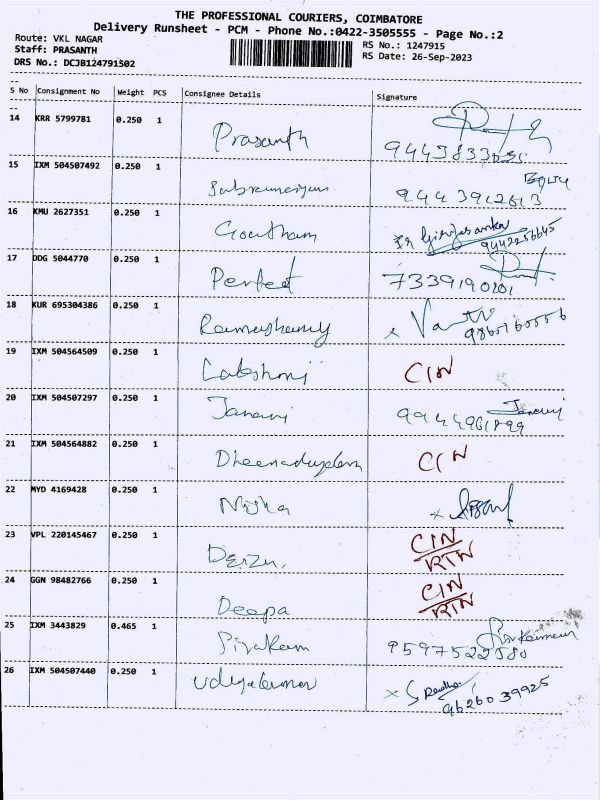 THE PROFESSIONAL COURIERS, COIMBATORE
Delivery Runsheet - PCM - Phone No.:0422-3505555 - Page No.:2
Route: VKL NAGAR
Staff: PRASANTH
DRS No.: DCJB124791502
RS No.: 1247915
RS Date: 26-Sep-2023
S No Consignment No Weight PCS Consignee Details Signature
14 KRR 5799781 0.250 1
Prasanth
15 IXM 504507492 0.250 1
9443912613
16 KMU 2627351 0.250 1
Goutham
9442256645
17 DDG 5044770 0.250 1
Perfect 7339190101
18 KUR 695304386 0.250 1
19 IXM 504564509 0.250 1
Lakshmi CIN
20 IXM 504507297 0.250 1
Janani 9944961899
21 IXM 504564882 0.250 1
Dheenadayalan CIN
22 MYD 4169428 0.250 1
Nisha
23 VPL 220145467 0.250 1
CIN
RTN
24 GGN 98482766 0.250 1
CIN
Deepa RTN
25 IXM 3443829 0.465 1
9597522580
26 IXM 504507440 0.250 1
Udhayakumar
9626039925